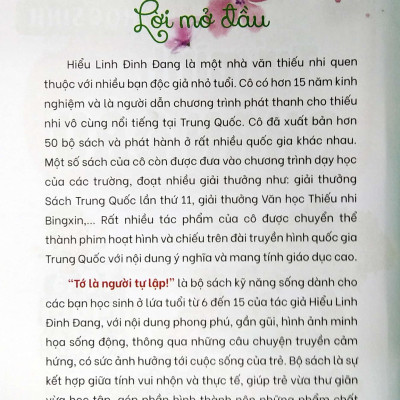 Lời mở đầu
Hiểu Linh Đinh Đang là một nhà văn thiếu nhi quen
thuộc với nhiều bạn độc giả nhỏ tuổi. Cô có hơn 15 năm kinh
nghiệm và là người dẫn chương trình phát thanh cho thiếu
nhi vô cùng nổi tiếng tại Trung Quốc. Cô đã xuất bản hơn
50 bộ sách và phát hành ở rất nhiều quốc gia khác nhau.
Một số sách của cô còn được đưa vào chương trình dạy học
của các trường, đoạt nhiều giải thưởng như: giải thưởng
Sách Trung Quốc lần thứ 11, giải thưởng Văn học Thiếu nhi
Bingxin,... Rất nhiều tác phẩm của cô được chuyển thể
thành phim hoạt hình và chiếu trên đài truyền hình quốc gia
Trung Quốc với nội dung ý nghĩa và mang tính giáo dục cao.
“Tớ là người tự lập!” là bộ sách kỹ năng sống dành cho
các bạn học sinh ở lứa tuổi từ 6 đến 15 của tác giả Hiểu Linh
Đinh Đang, với nội dung phong phú, gần gũi, hình ảnh minh
họa sống động, thông qua những câu chuyện truyền cảm
hứng, có sức ảnh hưởng tới cuộc sống của trẻ. Bộ sách là sự
kết hợp giữa tính vui nhộn và thực tế, giúp trẻ vừa thư giãn
vừa học tập, góp phần hình thành nên những phẩm chất